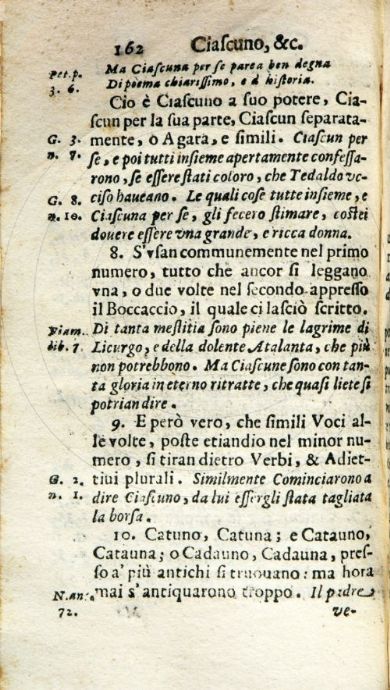 162 Ciascuno, &c.
Pet.p. Ma Ciascuna per se parea ben degna
3. 6. Di poema chiarissimo, e d' historia.
Cio è Ciascuno a suo potere, Cia-
scun per la sua parte, Ciascun separata-
G. 3. mente, o Agara, e simili. Ciascun per
n. 7. se, e poi tutti insieme apertamente confessa-
rono, se essere stati coloro, che Tedaldo vc-
G. 8. ciso haueano. Le quali cose tutte insieme, e
n. 10. Ciascuna per se, gli fecero stimare, costei
douere essere vna grande, e ricca donna.
8. S'vsan communemente nel primo
numero, tutto che ancor si leggano
vna, o due volte nel secondo appresso
il Boccaccio, il quale ci lasciò scritto.
Fiam. Di tanta mestitia sono piene le lagrime di
lib. 7. Licurgo, e della dolente Atalanta, che più
non potrebbono. Ma Ciascune sono con tan-
ta gloria in eterno ritratte, che quasi liete si
potrian dire.
9. E però vero, che simili Voci al-
le volte, poste etiandio nel minor nu-
mero, si tiran dietro Verbi, & Adiet-
G. 2. tiui plurali. Similmente Cominciarono a
n. 1. dire Ciascuno, da lui essergli stata tagliata
la borsa.
10. Catuno, Catuna; e Catauno,
Catauna; o Cadauno, Cadauna, pres-
so a' più antichi si truouano: ma hora
N.an. mai s'antiquarono troppo. Il padre
72. ve-